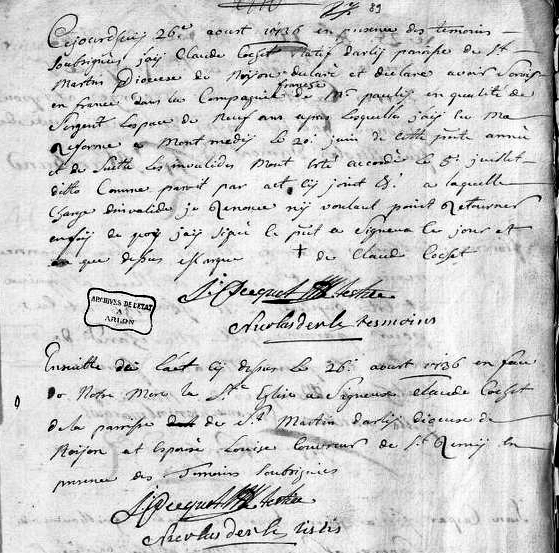 89
Cejourdhuy 26e aoust 1736 en presence des temoins
soubsignes jay Claude Cochet natif darly paroisse de St
Martin Diocese de Noyon declaré et declare avoir servis
en france dans la Compagnie françoise de Mr pauly en qualité de
Sergent Lespace de Neuf ans apres Lesquelles jay Eu Ma
Reforme a Mont medij le 20e juin de cette pnte année
et de suitte les invalides Mont Esté accordés le 5e juillet
ditto Comme paroit par act cij joint a laquelle
Charge dinvalide je Renonce nij voulant point Retourner
enfoij de quoy jaij signé le pnt a signeux le jour et
que depuis Marque + de Claude Cochet
Nicolas temoins
ARCHIVES DE L'ETAT
A
ARLON
Ensuitte de Lact cij depus le 26e aoust 1736 en face
de Notre Mere la Ste Eglise a Signeux Claude Cochet
de la paroisse de St Martin darly diocese de
Noijon et Espousé Louise Couvreur de St Remij en
presence des Temoins soubsignes
Nicolas